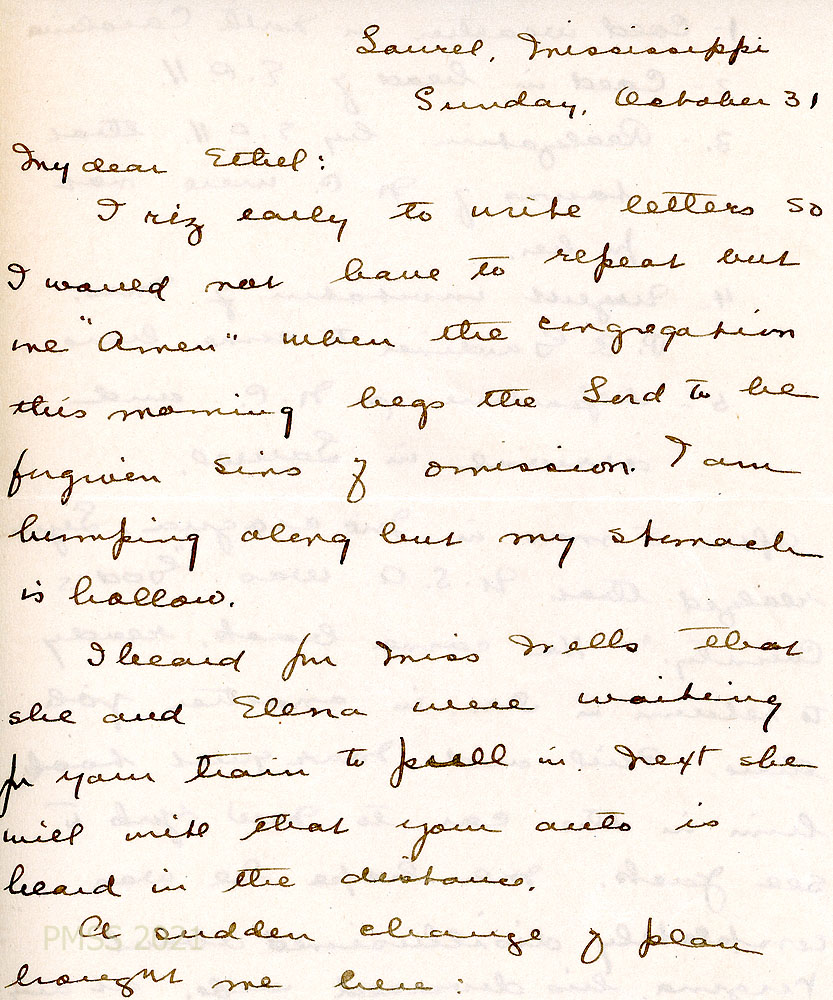 Laurel, Mississippi
Sunday, October 31
My dear Ethel:
I riz early to write letters so
I would not have to repeat but
me "Amen" when the congregation
this morning begs the Lord to be
forgiven sins of omission. I am
bumping along but my stomach
is hollow.
I heard fr Miss Wells that
she and Elena were waiting
for your train to pull in. Next she
will write that your auto is
heard in the distance.
A sudden change of plan
brought me here:
PMSS 2021